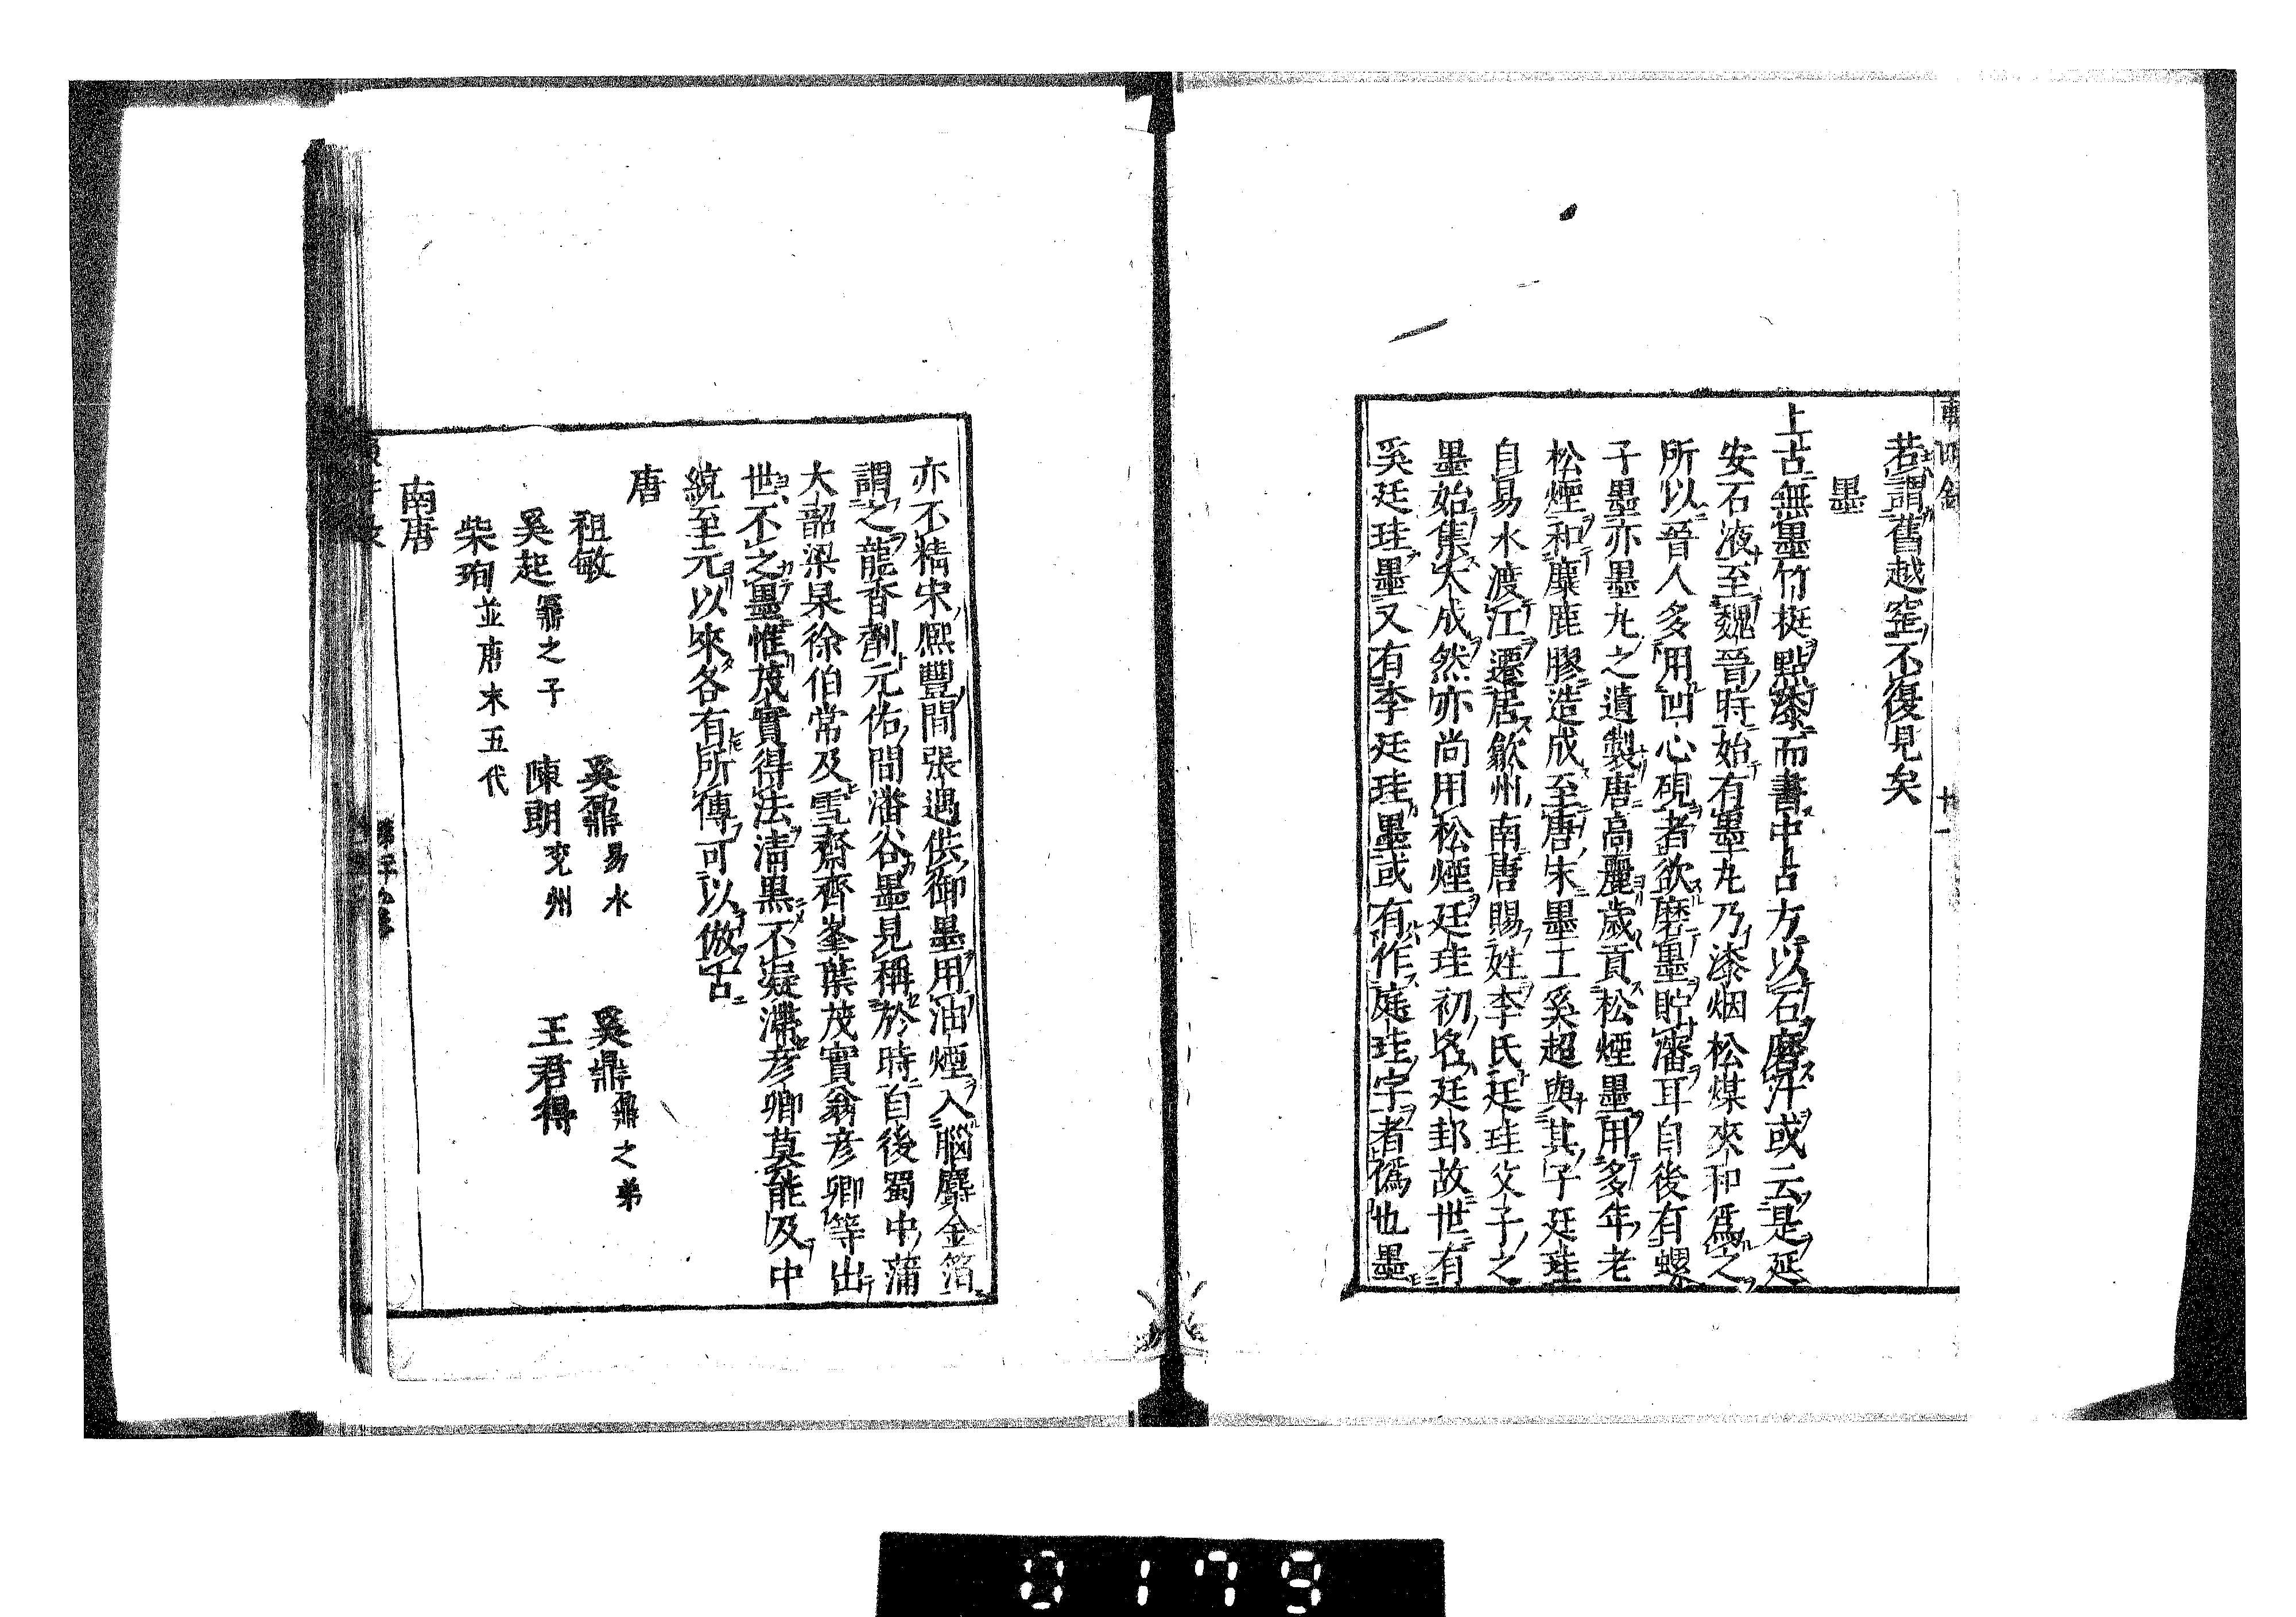 若謂舊越窑不復見矣
墨
上古無墨竹挺點漆而書中古方以石磨汁或云是延
安石液至魏晉時始有墨丸乃漆烟松煤夾和爲之
所以晉人多用凹心硯者欲磨墨貯瀋耳自後有螺
子墨亦墨丸之遺製唐高麗歲貢松煙墨用多年老
松煙和麋鹿膠造成至唐末墨工奚超與其子廷珪
自易水渡江遷居歙州南唐賜姓李氏廷珪父子之
墨始集大成然亦尚用松煙廷珪初名廷邽故世有
奚廷珪墨又有李廷珪墨或有作庭珪字者僞也墨
亦不精宋熈豐間張遇供御墨用油煙入腦麝金箔
謂之龍香劑元佑間潘谷墨見稱於時自後蜀中蒲
大韶梁杲徐伯常及雪齋齊峯葉茂實翁彦卿等出
世不之墨惟茂實得法清黑不凝滯彦卿莫能及中
統至元以來各有所傳可以倣古
唐
祖敏 奚鼐易水 奚鼎鼐之弟
奚起鼐之子 陳朗兗州 王君得
柴珣並唐末五代
南唐
0179